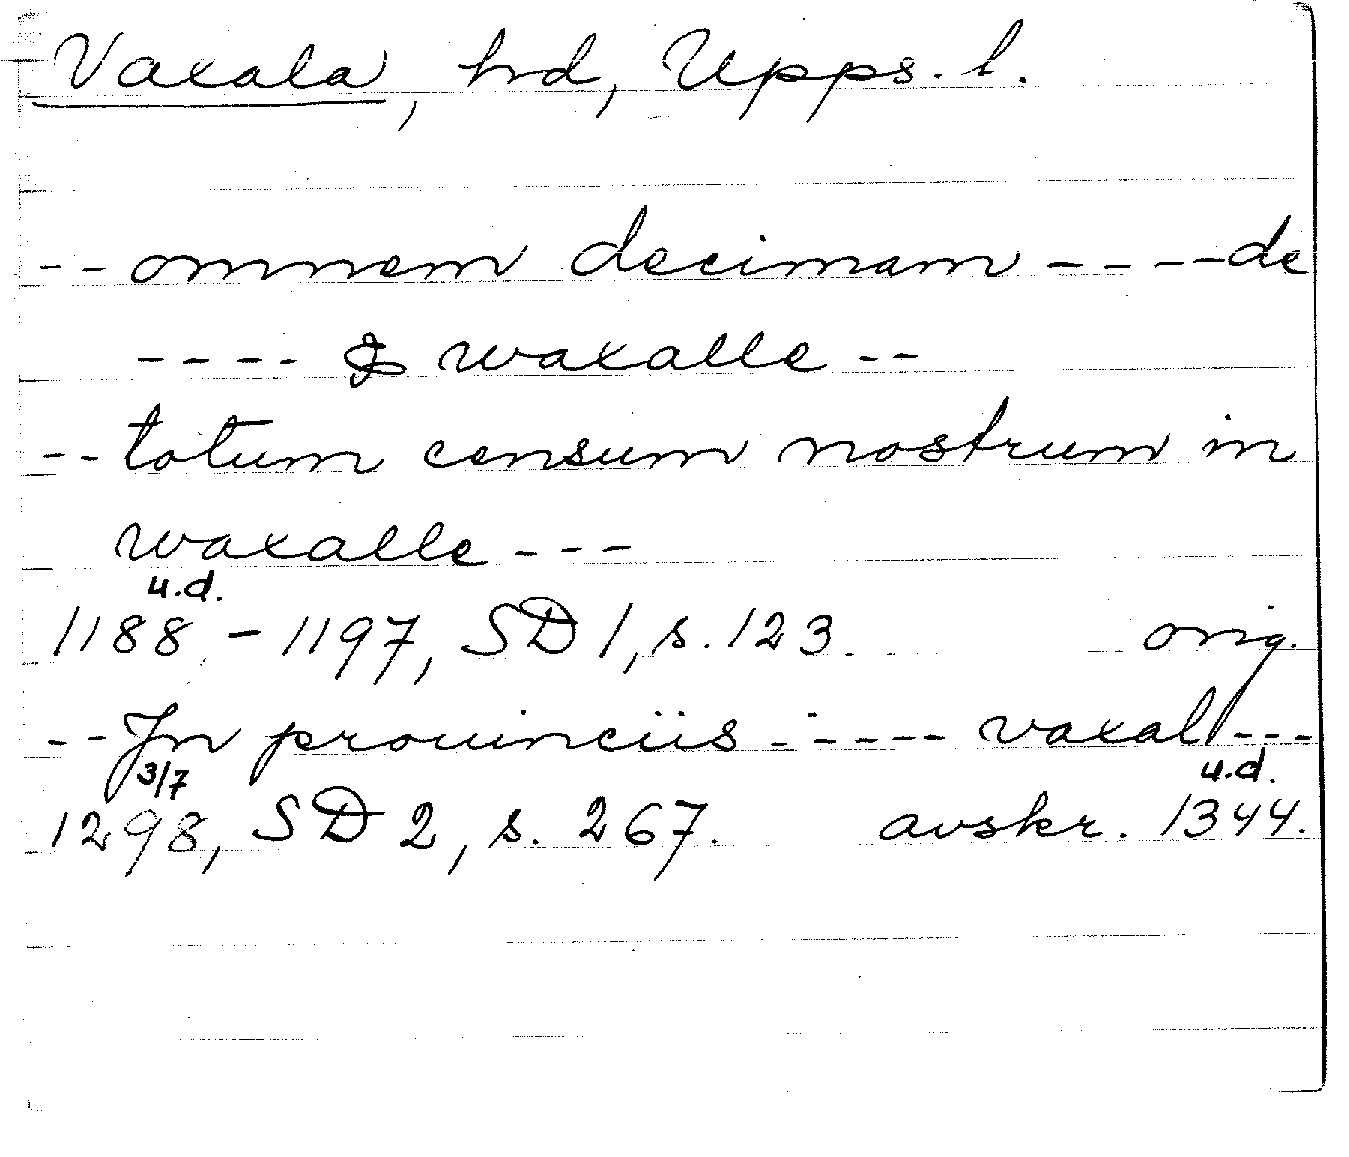 Vaxala, hrd, Upps. l.
-- omnem decimam ---- de
---- & waxalle --
-- totum censum nostrum in
waxalle ---
u.d.
1188 - 1197, SD 1, s. 123. orig.
-- Jn prouinciis ----- vaxal ---
3/7 u.d.
1298, SD 2, s. 267. avskr. 1344.